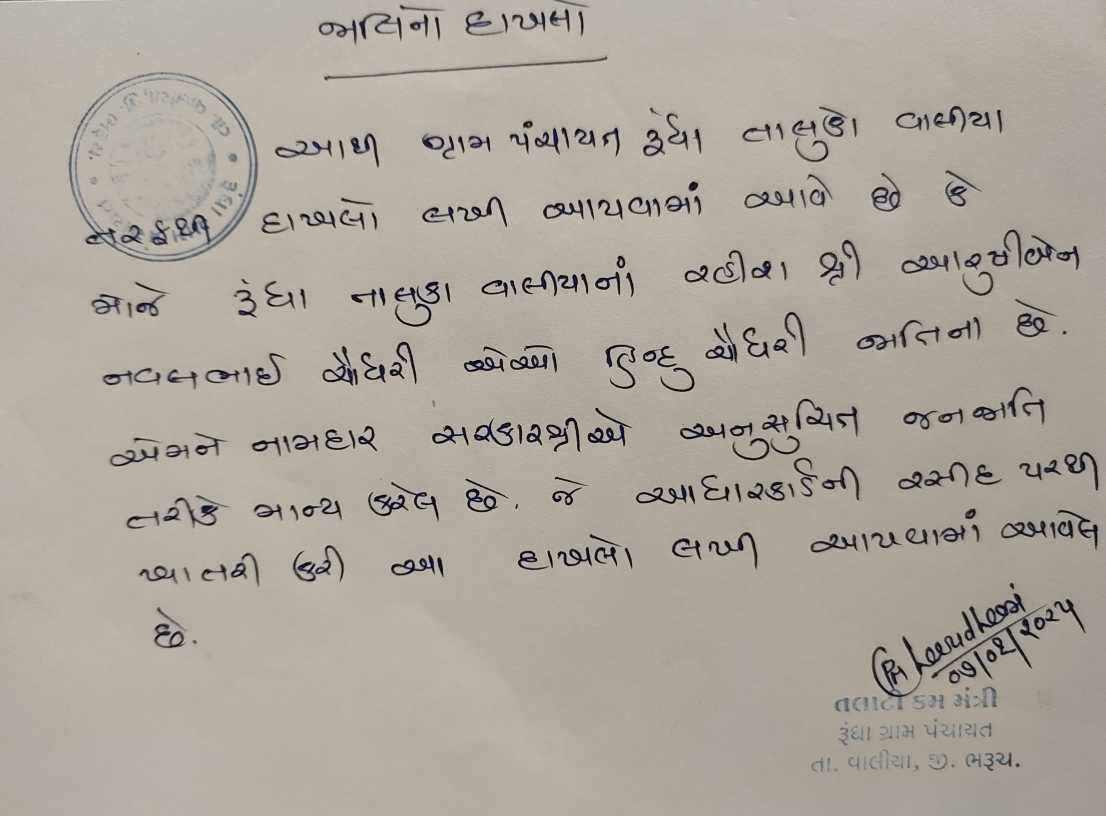 જાતિનો દાખલો
આથી ગ્રામ પંચાયત રૂંધા તાલુકો વાલીયા
તરફથી દાખલો લખી આપવામાં આવે છે કે
મોજે રૂંધા તાલુકા વાલીયાનાં રહીશ શ્રી આરુષીબેન
નવલભાઈ ચૌધરી એઓ હિન્દુ ચૌધરી જાતિના છે.
એમને નામદાર સરકારશ્રીએ અનુસુચિત જનજાતિ
તરીકે માન્ય કરેલ છે. જે આધારકાર્ડની રસીદ પરથી
ખાતરી કરી આ દાખલો લખી આપવામાં આવેલ
છે.
તલાટી કમ મંત્રી
રૂંધા ગ્રામ પંચાયત
તા. વાલીયા, જી. ભરૂચ.